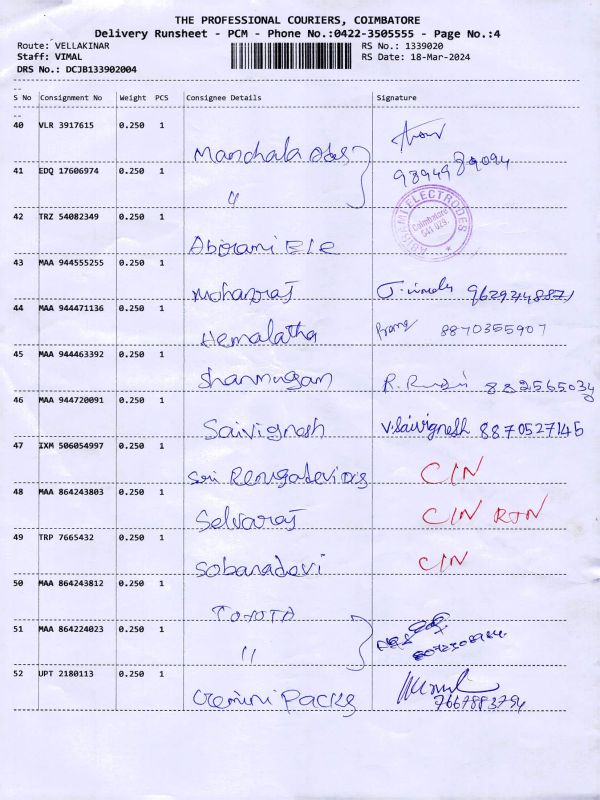 THE PROFESSIONAL COURIERS, COIMBATORE
Delivery Runsheet - PCM - Phone No.:0422-3505555 - Page No.:4
Route: VELLAKINAR RS No.: 1339020
Staff: VIMAL RS Date: 18-Mar-2024
DRS No.: DCJB133902004
S No Consignment No Weight PCS Consignee Details Signature
40 VLR 3917615 0.250 1
Manchala
41 EDQ 17606974 0.250 1 9894989094
"
ABIRAMI ELECTRODES
Coimbatore
641 029.
42 TRZ 54082349 0.250 1
Abirami Ele
43 MAA 944555255 0.250 1
Mohanraj 9629248871
44 MAA 944471136 0.250 1
Hemalatha 8870355907
45 MAA 944463392 0.250 1
Shanmugam 882565034
46 MAA 944720091 0.250 1
Saivignesh V.Saivignesh 8870527145
47 IXM 506054997 0.250 1
Sri Rengadevi CIN
48 MAA 864243803 0.250 1
Selvaraj CIN RTN
49 TRP 7665432 0.250 1
Sobanadevi CIN
50 MAA 864243812 0.250 1
TOYOTA
51 MAA 864224023 0.250 1
"
52 UPT 2180113 0.250 1
Gemini Packs 7667883794